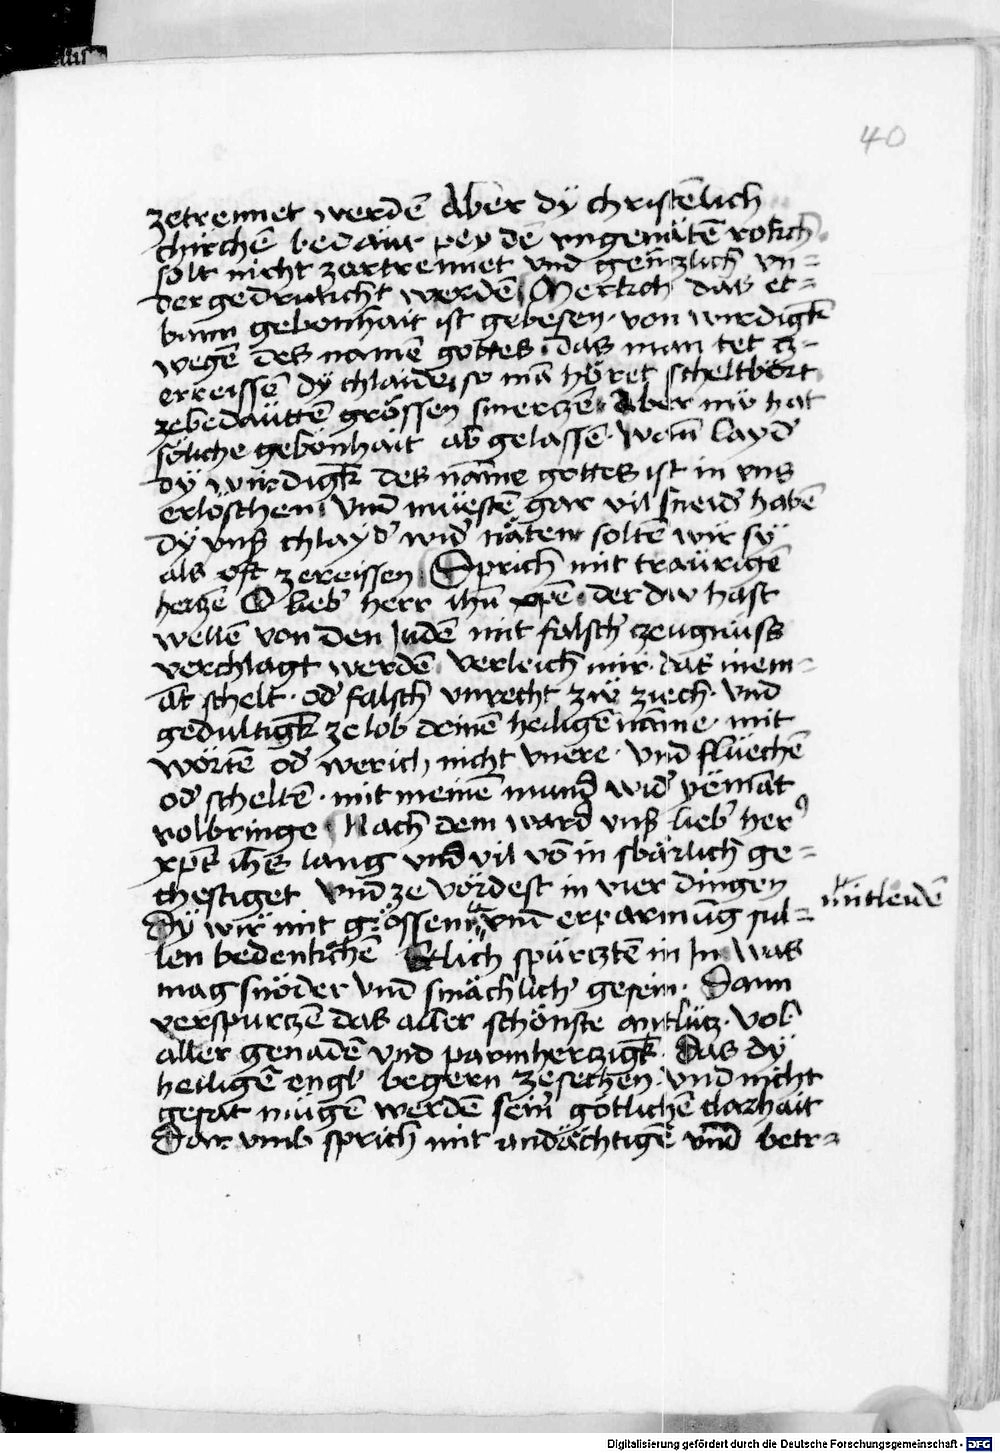 40
zetrennet werdē Aber dÿ christēlich
chirchē bedäut pey dē vngenätē rokch
solt nicht zertrennet vnd gentzlich vn=
dergedrukcht werdē Merkch das et=
bann gebonhait ist gebesen · von wirdigk̄
wegē des namē gottes · das man tet cz=
erreissē dÿ chlaider so mā höret scheltbört
zebedäuttē grössen smerczē Aber nw hat
söliche gebonhait ab gelassē · wañ layd
dÿ wirdigk̄ des name gottes ist in vns
erloschen Vnd müestē gar vil sneid̕ habē
dÿ vnß chlayd̕ wid̕ näten soltē wir sÿ
als oft zereissen Sprich mit traürigē
hertzē O lieb̕ herr ihū xpē · der dw hast
wellē von den Judē mit falsch̕ czeugnuss
verchlagt werdē verleich mir · das niem=
āt schelt · od̕ falsch vnrecht zw ziech · vnd
gedultigk̄ ze lob deinē heiligē name · mit
wörtē od̕ werich nicht vnere · vnd flüechē
od̕ scheltē · mit meinē mund wid̕ yemāt
volbringe Nach dem ward vnß lieb̕ her
xp̄s ih̄s lang vnd vil vō in sbärlich ge=
chestiget vnd ze vördest in vier dingen
Dÿ wir mit grössem vnd erparmūg sul=
mitleidē
len bedenkchē Etlich spürtztē in In was
mag snöder vnd smächlich̕ gesein · Dann
verspurczē das aller schönste antlütz · vol
aller genadē vnd parmhertzigk̄ · Das dÿ
heiligē engl̕ begern zesechen · vnd nicht
gesat mügē werdē sein̕ götlichē clarhait
Dar vmb sprich mit andächtigē vnd betr=
Digitalisierung gefördert durch die Deutsche Forschungsgemeinschaft - DFG